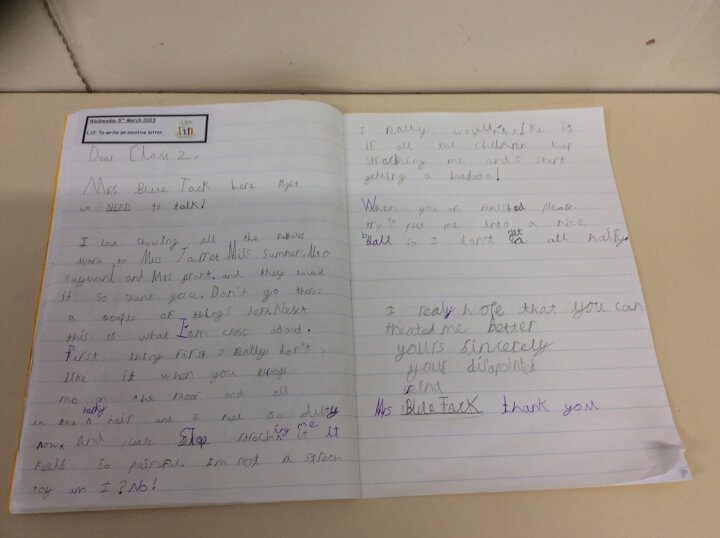 Wednesday 8th March 2023
L.O: To write an emotive letter.
Dear Class 2,
Mrs Blue Tack here right
we NEED to talk!
I love showing all the fabules
work to Mrs Jarret Miss Sumner, Mrs
Hayward and Mrs grant. and they loved
it so thank you. Don't go theres
a couple of thing's left. Next
this is what I am cross about.
First thing first I really don't
like it when you
me on the floor and all
in the hairy hair and I feel so duity
now. And please Stop strechning me it it
Feels so painful. I'm not a strech
toy am I? No!
I really wouldn't like it
IF all the children keep
streching me and I start
getting a headace!
When you are finished please
put me into a nice
ball so I don't get all hairy
I realy hope that you can
theated me better
yours sincerely
your disapointi
frind
Mrs Blue Tack thank you